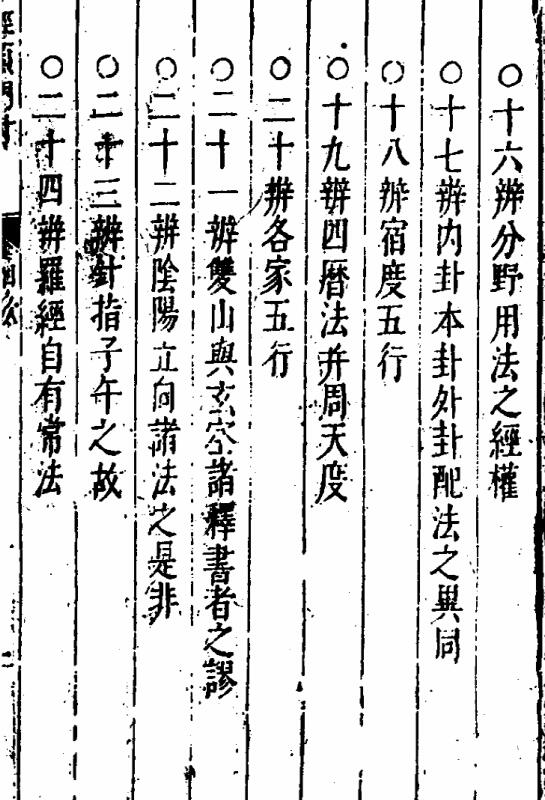 ○十六辨分野用法之經權
○十七辨内卦本卦外卦配法之異同
○十八辨宿度五行
○十九辨四曆法并周天度
○二十辨各家五行
○二十一辨雙山與玄空諸釋書者之謬
○二十二辨陰陽立向諸法之是非
○二十三辨針指子午之故
○二十四辨羅經自有常法